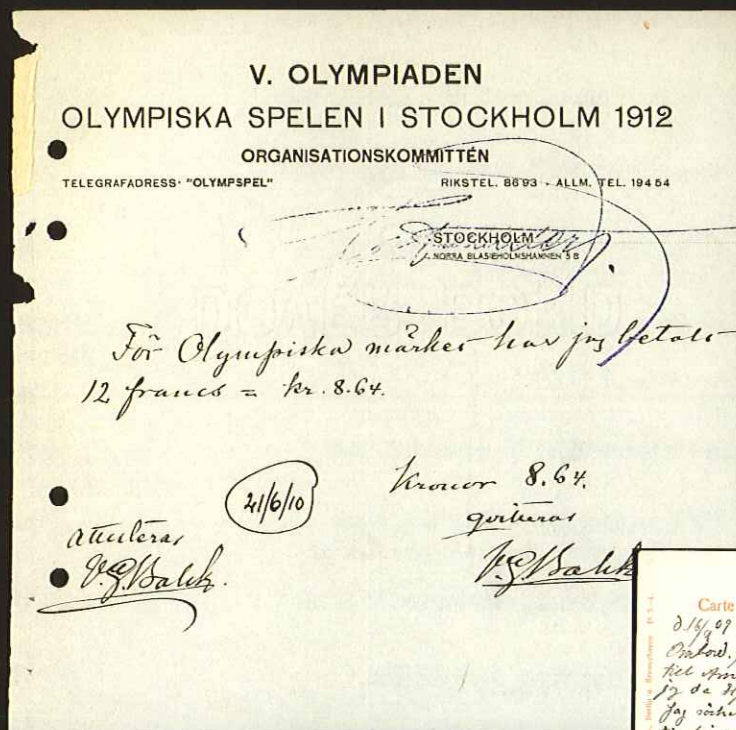 V. OLYMPIADEN
OLYMPISKA SPELEN I STOCKHOLM 1912
ORGANISATIONSKOMMITTÉN
TELEGRAFADRESS· "OLYMPSPEL" RIKSTEL. 86 93 · ALLM. TEL. 194 54
STOCKHOLM
NORRA BLASIEHOLMSHAMNEN 5 B
För Olympiska märken har jag betalt
12 francs = kr. 8.64.
Kronor 8.64.
21/6/10
qvitteras
attesteras
V.G. Balck.
V.G. Balck
Carte
d. 16/9 09
Ombord.
till
jag da
Jag